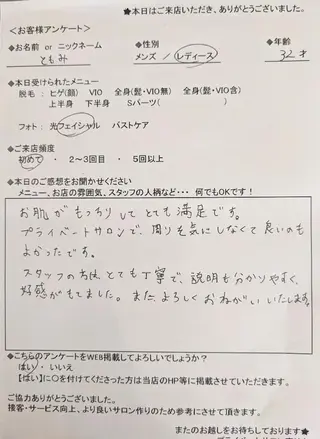 ★本日はご来店いただき、ありがとうございました。
<お客様アンケート>
◆お名前 or ニックネーム ◆性別 ◆年齢
ともみ メンズ / レディース 32才
◆本日受けられたメニュー
脱毛:ヒゲ(顔) VIO 全身(髭・VIO無) 全身(髭・VIO含)
上半身 下半身 Sパーツ( )
フォト:光フェイシャル バストケア
◆ご来店頻度
初めて ・ 2~3回目 ・ 5回以上
◆本日のご感想をお聞かせください
メニュー、お店の雰囲気、スタッフの人柄など・・・ 何でもOKです!
お肌がもっちりしてとても満足です。
プライベートサロンで、周りを気にしなくて良いのも
よかったです。
スタッフの方は、とても丁寧で、説明も分かりやすく、
好感がもてました。またよろしくおねがいいたします。
◆こちらのアンケートをWEB掲載してよろしいでしょうか?
はい・いいえ
【はい】に○を付けてくださった方は当店のHP等に掲載させていただきます。
ご協力ありがとうございました。
接客・サービス向上、より良いサロン作りのため参考にさせて頂きます。
またのお越しをお待ちしております★